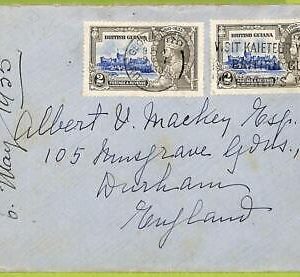 BRITISH GUIANA
BRITISH GUIANA
VISIT KAIETEU
2
2
Albert V. Mackey Esq.
105 Musgrave Gdns.,
Durham
England
May 1935